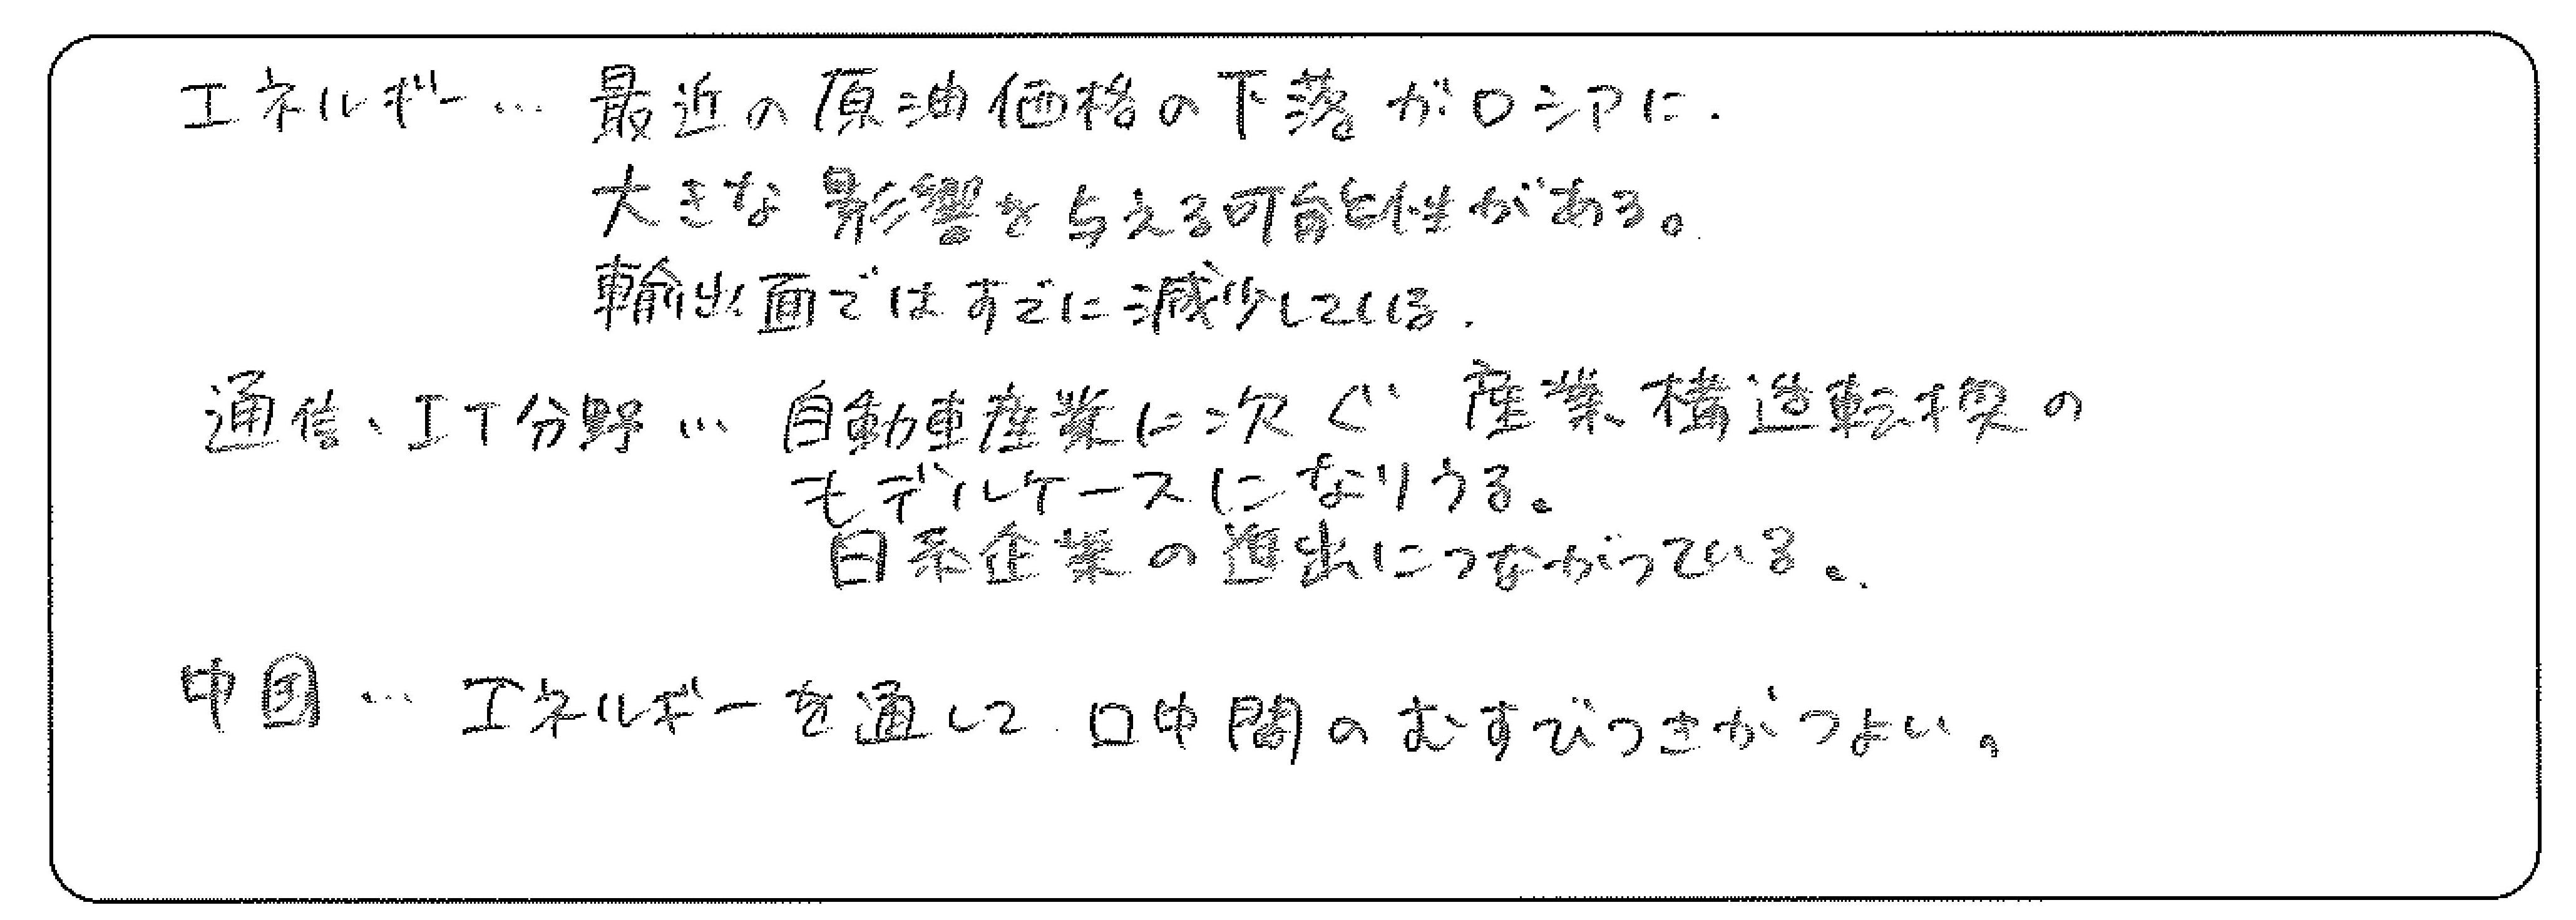 エネルギー… 最近の原油価格の下落がロシアに
大きな影響を与える可能性がある。
輸出面ではすでに減少している.
通信、IT分野… 自動車産業に次ぐ産業構造転換の
モデルケースになりうる。
日系企業の進出につながっている。
中国… エネルギーを通して ロ中間のむすびつきがつよい。